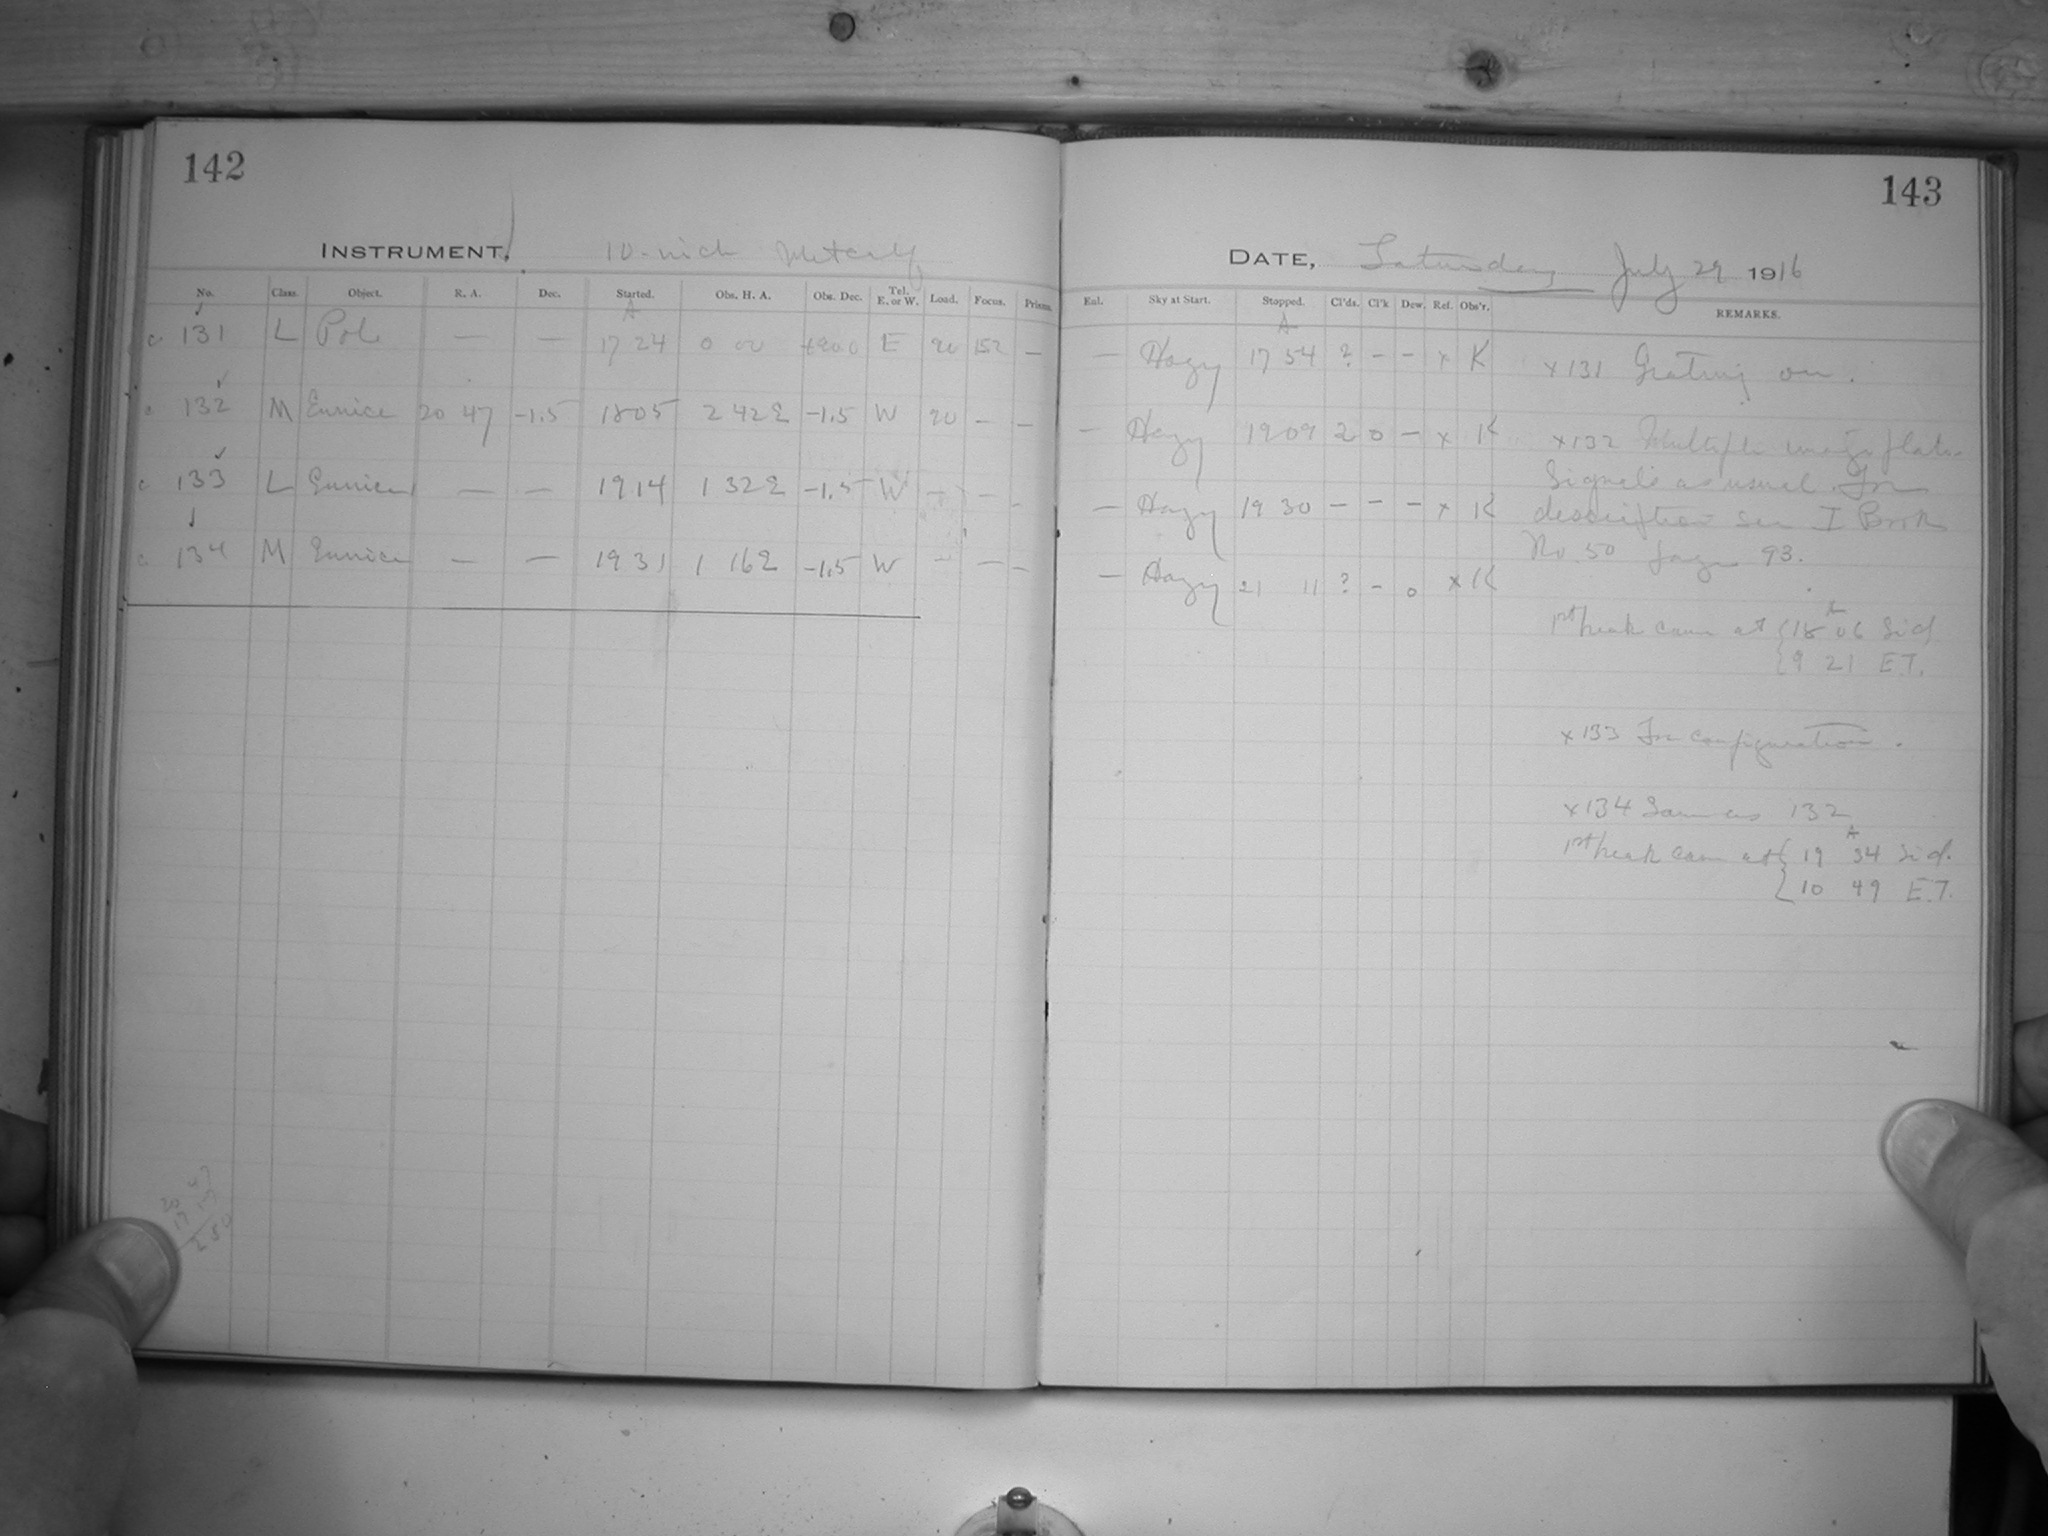 142
INSTRUMENT, 10-inch Metcalf
No. Class. Object. R. A. Dec. Started. Obs. H. A. Obs. Dec. Tel. E. or W. Load. Focus. Prism.
c 131 L Pole — — 17 24 0 00 +90.0 E 90 152 —
c 132 M Eunice 20 47 -1.5 18 05 2 42 E -1.5 W 90 — —
c 133 L Eunice — — 19 14 1 32 E -1.5 W — — —
c 134 M Eunice — — 19 31 1 16 E -1.5 W — — —
20 47
17
2 50
143
DATE, Saturday July 29 1916
Enl. Sky at Start. Stopped. Cl'ds. Cl'k Dew. Ref. Obs'r. REMARKS.
— Hazy 17 54 ? — — x K
— Hazy 19 09 2 0 — x K
— Hazy 19 30 — — — x K
— Hazy 21 11 ? — 0 x K
x 131 Grating on.
x 132 Multiple image plate
Signals as usual. For
description see I Book
No. 50 page 93.
1st peak came at 18 06 Sid
9 21 E.T.
x 133 For configuration.
x 134 Same as 132
1st peak came at 19 34 Sid.
10 49 E.T.